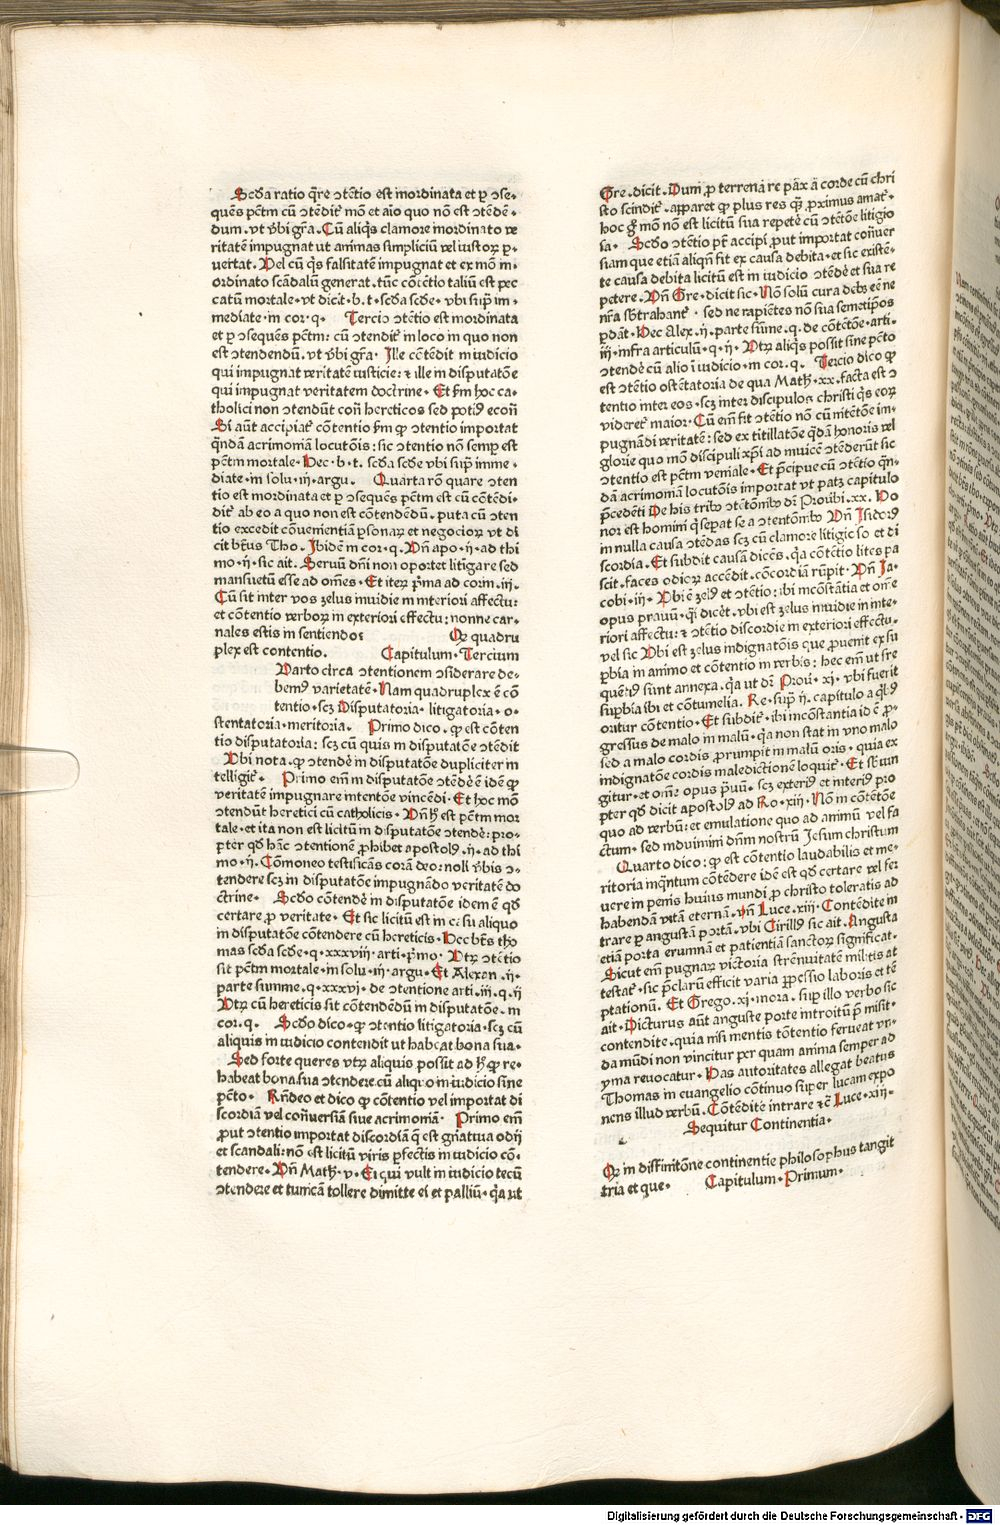 Scda ratio q̄re ɔtētio est inordinata et ꝑ ɔse-
quēs pctm cū ɔtēdit᷑ mō et aīo quo nō est ɔtēdē-
dum. vt v̄bi gr̄a. Cū aliq̄s clamore inordinato ve
ritatē impugnat ut animas simpliciū vel iustoꝝ ꝑ-
vertat. Vel cū q̄s falsitatē impugnat et ex mō in-
ordinato scādalū generat. tūc cōtētio taliū est pec
catū mortale. vt dicit. b. t. scda scde. vbi supͥ im-
mediate in cor. q. Tercio ɔtētio est inordinata
et ꝑ ɔsequēs pctm: cū ɔtendit᷑ in loco in quo non
est ɔtendendū. vt v̄bi gr̄a. Ille cōtēdit in iudicio
qui impugnat veritatē iusticie: ⁊ ille in disputatōe
qui impugnat veritatem doctrine. Et s̄m hoc ca-
tholici non ɔtendūt cōtͣ hereticos sed potiꝰ econͣ
Si aūt accipiat᷑ cōtentio s̄m ꝙ ɔtentio importat
qͣndā acrimoniā locutōis: sic ɔtentio nō semꝑ est
pctm mortale. Hec. b. t. scda scde vbi supͥ imme-
diate. in solu. iii. argu. Quarta rō quare ɔten
tio est inordinata et ꝑ ɔsequēs pctm est cū cōtēdi-
dit᷑ ab eo a quo non est cōtendēdū. puta cū ɔten
tio excedit cōvenientiā ꝑsonaꝝ et negocioꝝ vt di
cit bt̄us Tho. Ibidē in cor. q. Vn̄ apo. ii. ad thi
mo. ii. sic ait. Servū dn̄i non oportet litigare sed
mansuetū esse ad om̄es. Et iteꝝ pͥma ad corin. iii.
Cū sit inter vos zelus invidie in interiori affectu:
et cōtentio verboꝝ in exteriori effectu: nonne car-
nales estis in sentiendo: Qꝝ quadru
plex est contentio. Capitulum. Tercium
Quarto circa ɔtentionem ɔsiderare de-
bemꝰ varietatē. Nam quadruplex ē cō
tentio. scꝫ Disputatoria. litigatoria. o-
stentatoria. meritoria. Primo dico. ꝙ est cōten
tio disputatoria: scꝫ cū quis in disputatōe ɔtēdit
Ubi nota. ꝙ ɔtendē in disputatōe dupliciter in
telligit᷑. Primo em̄ in disputatōe ɔtēdē ē idē ꝙ
veritatē impugnare intentōe vincēdi. Et hoc mō
ɔtendūt heretici cū catholicis. Vn̄ h̄ est pctm mor
tale. et ita non est licitū in disputatōe ɔtendē: pro-
pter qd hāc ɔtentionē ꝓhibet apostolꝰ. ii. ad thi
mo. ii. Cōmoneo testificās corā deo: noli v̄bis ɔ-
tendere scꝫ in disputatōe impugnādo veritatē do
ctrine. Scdo cōtendē in disputatōe idem ē qd
certare ꝓ veritate. Et sic licitū est in casu aliquo
in disputatōe cōtendere cū hereticis. Hec bt̄s tho
mas scda scde. q. xxxviii. arti. pͥmo. Vtꝝ ɔtētio
sit pctm mortale. in solu. iii. argu. Et Alexan. ii.
parte summe. q. xxxvi. de ɔtentione arti. iii. q. ii
Vtꝝ cū hereticis sit cōtendēdū in disputatōe. in
cor. q. Scdo dico. ꝙ ɔtentio litigatoria. scꝫ cū
aliquis in iudicio contendit ut habeat bona sua.
Sed forte queres vtꝝ aliquis possit ad h̄ ꝙ re-
habeat bona sua ɔtendere. cū aliquo in iudicio sine
pctō. Rn̄deo et dico ꝙ cōtentio vel importat di
scordiā vel cōtͣversiā sive acrimoniā. Primo em̄
ꝓut ɔtentio importat discordiā q̄ est gn̄ativa odij
et scandali: nō est licitū viris ꝑfectis in iudicio cō-
tendere. Vn̄ Math. v. Ei qui vult in iudicio tecū
ɔtendere et tunicā tollere dimitte ei et palliū. qͣa ut
Gre. dicit. Dum ꝓ terrena re pāx a corde cū chri
sto scindit᷑. apparet ꝙ plus res qͣꝫ ꝓximus amat᷑.
hoc gͦ mō nō est licitū sua repetē cū ɔtētōe litigio
sa. Scdo ɔtētio pt̄ accipi ꝓut importat cōtͣver
siam que etiā aliqn̄ fit ex causa debita. et sic existē-
te causa debita licitū est in iudicio ɔtēdē et sua re
petere. Vn̄ Gre. dicit sic. Nō solū cura debꝫ eē ne
nr̄a sb̄trahant᷑. sed ne rapiētes nō sua semetip̄os
ꝑdāt. Hec Alex. ii. parte sūme. q. de cōtētōe. arti-
iii. infra articulū. q. ii. Vtꝝ aliq̄s possit sine pctō
ɔtendē cū alio ī iudicio. in cor. q. Tercio dico ꝙ
est ɔtētio ostētatoria de qua Math. xx. facta est ɔ
tentio inter eos. scꝫ inter discipulos christi qͥs eoꝝ
videret᷑ maior. Cū em̄ fit ɔtētio nō cū intētōe im-
pugnādi veritatē: sed ex titillatōe qͣdā honoris vel
glorie quo mō discipuli xp̄i ad invicē ɔtēderūt sic
ɔtentio est pctm veniale. Et pͥcipue cū ɔtētio qͣn-
dā acrimoniā locutōis importat vt patꝫ capitulo
p̄cedēti De his tribꝰ ɔtētōibꝰ dr̄ Prov̄bi. xx. Ho
nor est homini qͥ sepat se a ɔtentōibꝰ Vn̄ Isidorꝰ
in nulla causa ɔtēdas scꝫ cū clamore litigioso et di
scordia. Et subdit causā dicēs. qͣa cōtētio lites pa
scit. faces odioꝝ accēdit. cōcordiā rūpit. Vn̄ Ja-
cobi. iii. Vbi ē zelꝰ et ɔtētio: ibi incōstātia et om̄e
opus pravū. qͣsi dicēt. vbi est zelus invidie in inte-
riori affectu: ⁊ ɔtētio discordie in exteriori effectu.
vel sic Vbi est zelus indignatōis que ꝓvenit ex su
ꝑbia in animo et cōtentio in verbis: hec em̄ ut fre
quēti9 sūnt annexa. qͣa ut dr̄ Prov. xi. vbi fuerit
suꝑbia ibi et cōtumelia. Re. supͥ. ii. capitulo a qͣ lꝫ
oritur cōtentio. Et subdit᷑. ibi incōstantia id ē ꝓ-
gressus de malo in malū. qͣa non stat in uno malo
sed a malo cordis ꝓrumpit in malū oris. quia ex
indignatōe cordis maledictionē loquit᷑. Et sequn
gitur. et om̄e opus pͣvū. scꝫ exteriꝰ et interiꝰ pro
pter qd dicit apostolꝰ ad Ro. xiii. Nō in cōtētōe
quo ad verbū: et emulatione quo ad animū vel fa
ctum. sed induimini dn̄m nostrū Jesum christum
Quarto dico: ꝙ est cōtentio laudabilis et me-
ritoria inqͣntum cōtendere idē est qd certare vel fer
vere in penis huius mundi ꝓ christo toleratis ad
habendā vitā eternā. vn̄ Luce. xiii. Contendite in
trare ꝑ angustā portā. vbi Cirillꝰ sic ait. Angusta
etiā porta erumnā et patientiā sanctoꝝ significat.
Sicut em̄ pugnaꝝ victoria strēnuitatē militis at
testat᷑. sic p̄clarū efficit varia ꝑpessio laboris et tē
ptationū. Et Grego. xi. mora. sup illo verbo sic
ait. Dicturus aūt anguste porte introitū p̄misit.
contendite. quia nisi mentis cōtentio ferveat un-
da mūdi non vincitur per quam anima semper ad
yma revocatur. Has autoritates allegat beatus
Thomas in euangelio cōtinuo super lucam expo
nens illud verbū. Cōtēdite intrare ⁊c̄ Luce. xiii.
Sequitur Continentia.
Qꝝ in diffinitōne continentie philosophus tangit
tria et que. Capitulum. Primum.
Digitalisierung gefördert durch die Deutsche Forschungsgemeinschaft - DFG